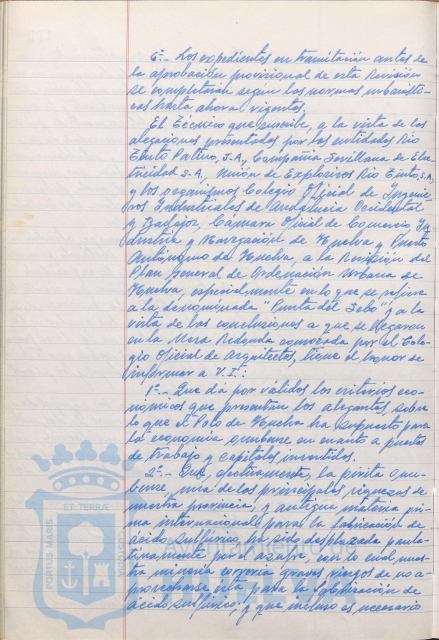 6º.- Los expedientes en tramitación antes de
la aprobación provisional de esta Revisión
se completarán segun las normas urbanísti-
cas hasta ahora vigentes.
El Técnico que suscribe, a la vista de las
alegaciones presentadas por las entidades Rio
Tinto Patiño, S.A., Compañia Sevillana de Elec-
tricidad S.A., Unión de Explosivos Rio Tinto, S.A.
y los organismos Colegio Oficial de Ingenie-
ros Industriales de Andalucia Occidental
y Badajoz, Cámara Oficial de Comercio In-
dustria y Navegación de Huelva y Puerto
Autónomo de Huelva, a la Revisión del
Plan General de Ordenación Urbana de
Huelva, especialmente en lo que se refiere
a la denominada "Punta del Sebo" y a la
vista de las conclusiones a que se llegaron
en la Mesa Redonda convocada por el Cole-
gio Oficial de Arquitectos, tiene el honor de
informar a V.I.:
1º.- Que da por válidos los criterios eco-
nómicos que presentan los alegantes, sobre
lo que el Polo de Huelva ha supuesto para
la economía onubense en cuanto a puestos
de trabajo y capitales invertidos.
2º.- Que, efectivamente, la pirita onu-
bense una de las principales riquezas de
nuestra provincia, y antigua materia pri-
ma internacional para la fabricación de
ácido sulfúrico, ha sido desplazada paula-
tinamente por el azufre, con lo cual nues-
tra mineria correria graves riesgos de no a-
provecharse esta para la fabricación de
ácido sulfúrico, y que incluso es necesario
PORTUS MARIS
ET TERRÆ
CUSTODIA